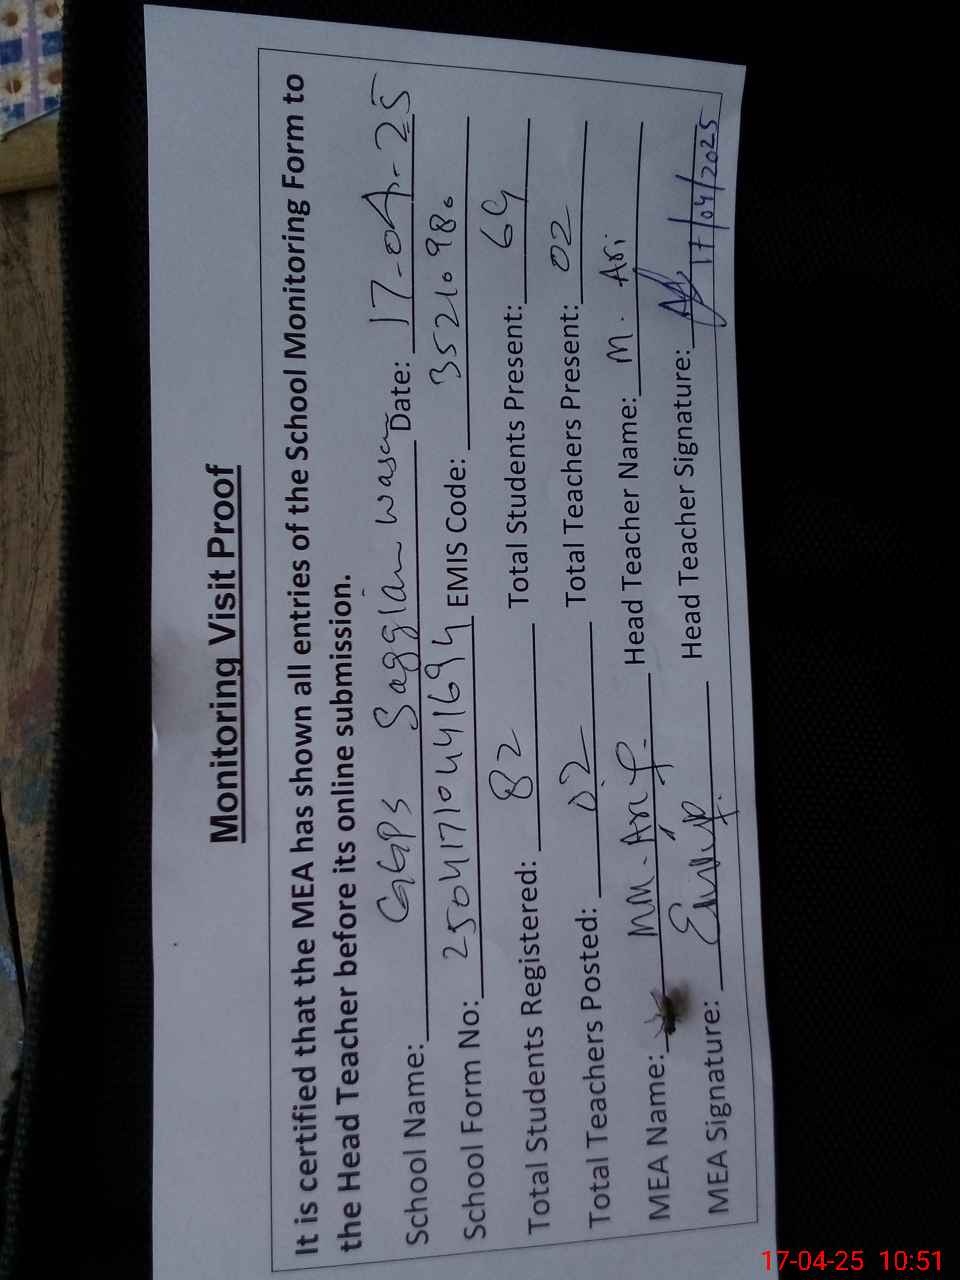 Monitoring Visit Proof
It is certified that the MEA has shown all entries of the School Monitoring Form to
the Head Teacher before its online submission.
School Name: GGPS Sagglan Wasan Date: 17-04-25
School Form No: 25041710441694 EMIS Code: 35210980
Total Students Registered: 82 Total Students Present: 69
Total Teachers Posted: 02 Total Teachers Present: 02
MEA Name: MM. Arif Head Teacher Name: M. Ari
MEA Signature: Head Teacher Signature: 17/04/2025
17-04-25 10:51